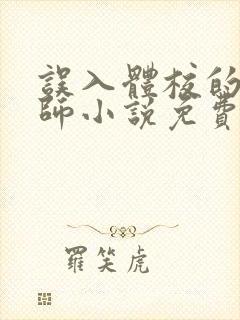 誤入體校的
師小說免費
羅笑虎